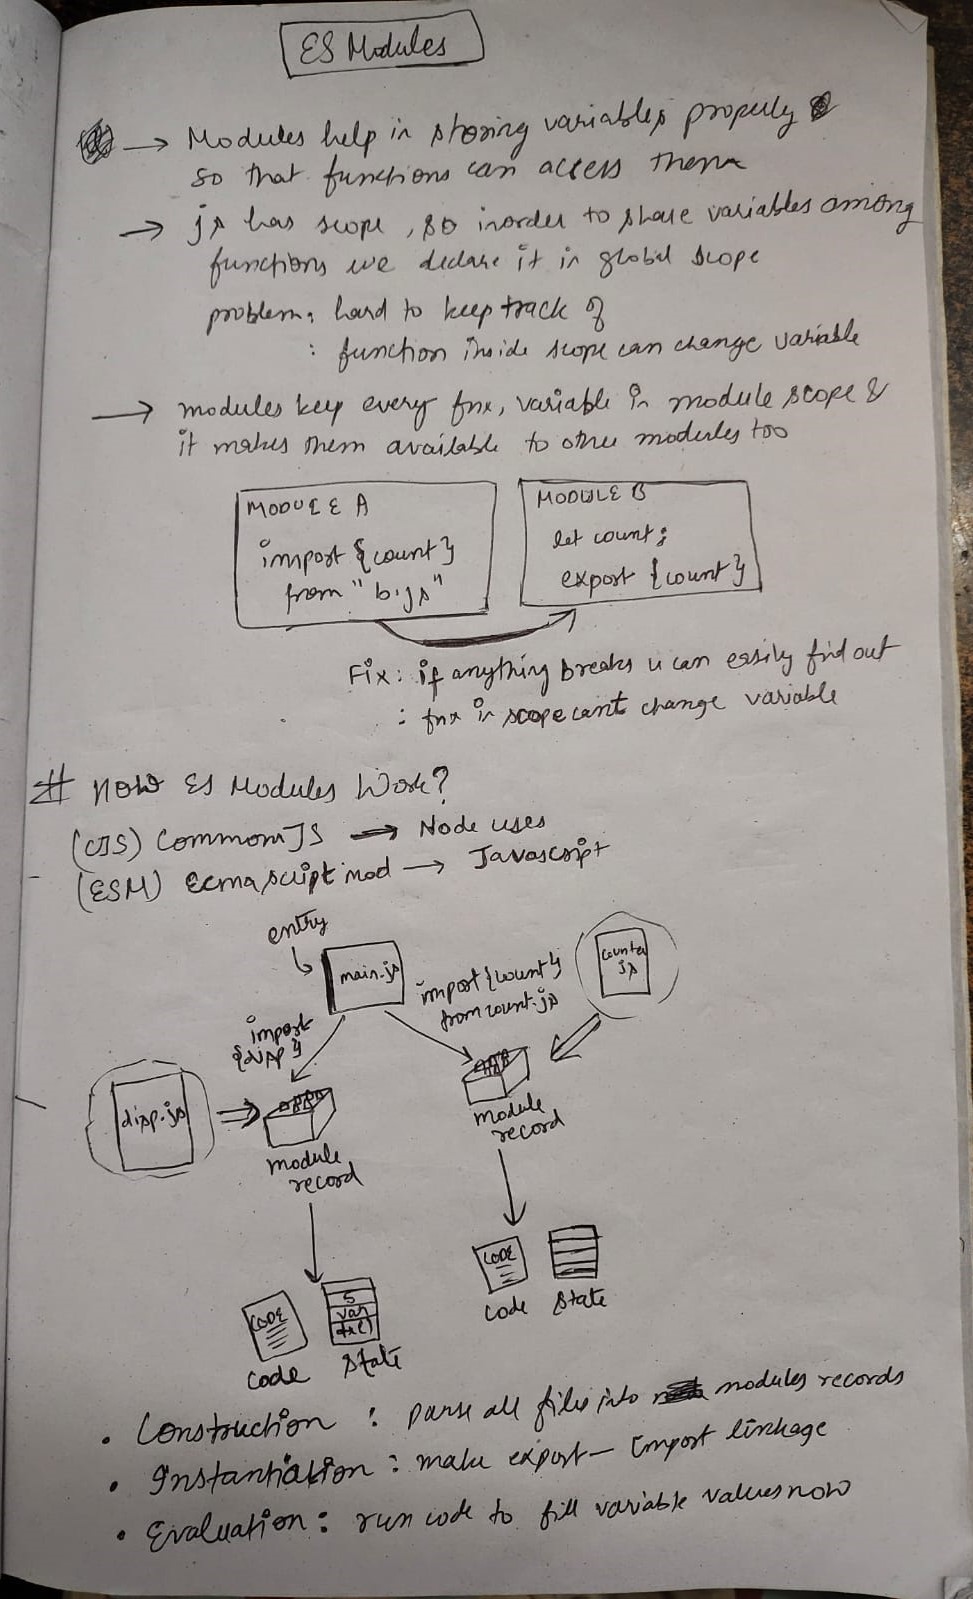 ES Modules
→ Modules help in storing variables properly
so that functions can access them
→ js has scope, so inorder to share variables among
functions we declare it in global scope
problem: hard to keep track of
: function inside scope can change variable
→ modules keep every fnx, variable in module scope &
it makes them available to other modules too
MODULE A
import {count}
from "b.js"
MODULE B
let count;
export {count}
Fix: if anything breaks u can easily find out
: fnx in scope cant change variable
# How ES Modules Work?
(CJS) CommonJS → Node uses
(ESM) Ecmascript mod → Javascript
entry
main.js
import {count}
from count.js
counter
js
import
{disp}
disp.js
module
record
module
record
CODE
code
state
CODE
code
5
var
state
• Construction : parse all files into modules records
• Instantiation : make export - Import linkage
• Evaluation : run code to fill variable values now